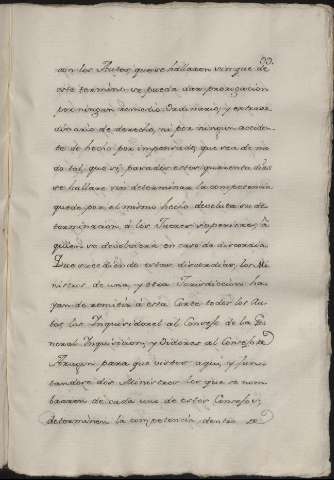 33.
con los Autos que se hallaren sin que de
este termino se pueda dar prorogacion
por ningun remedio Ordinario, y extraor
dinario de derecho, ni por ningun acciden-
te de hecho por impensado, que sea de mo
do tal, que si pasados estos quarenta dias
se hallare sin determinar la competencia
quede por el mismo hecho devoluta su de
terminacion á los Jueces superiores, á
quien se devolverá en caso de discordia.
Que sucediendo estas discordias, los Mi
nistros de una, y otra Jurisdiccion ha
yan de remitir á esta Corte todos los Au
tos los Inquisidores al Consejo de la Ge
neral Inquisicion, y Oidores al Consejo de
Aragon, para que vistos aqui, y jun
tandose dos Ministros los que se nom
braren de cada uno de estos Consejos,
determinen la competencia, dentro de